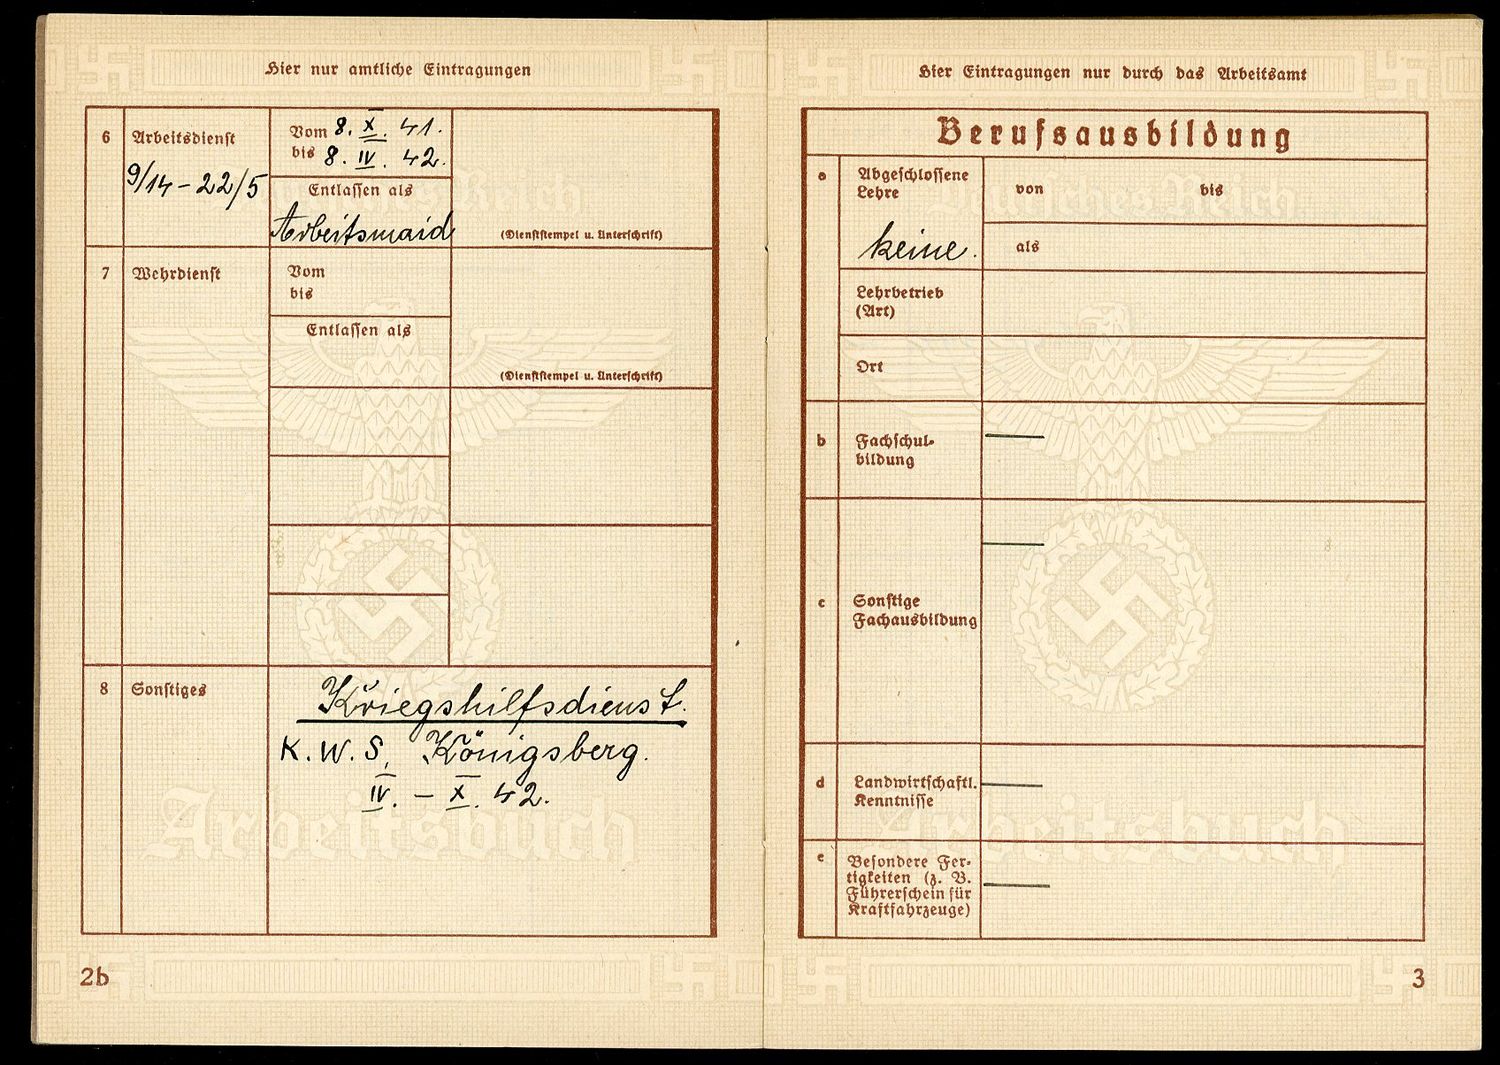 Hier nur amtliche Eintragungen
6 Arbeitsdienst
9/14 - 22/5
Vom 8. X. 41.
bis 8. IV. 42.
Entlassen als
Arbeitsmaid
(Dienststempel u. Unterschrift)
7 Wehrdienst
Vom
bis
Entlassen als
(Dienststempel u. Unterschrift)
8 Sonstiges
Kriegshilfsdienst.
K. W. S. Königsberg.
IV. - X. 42.
Deutsches Reich
Arbeitsbuch
2b
Hier Eintragungen nur durch das Arbeitsamt
Berufsausbildung
a Abgeschlossene
Lehre
keine.
von bis
als
Lehrbetrieb
(Art)
Ort
b Fachschul-
bildung
c Sonstige
Fachausbildung
d Landwirtschaftl.
Kenntnisse
e Besondere Fer-
tigkeiten (z. B.
Führerschein für
Kraftfahrzeuge)
Deutsches Reich
Arbeitsbuch
3